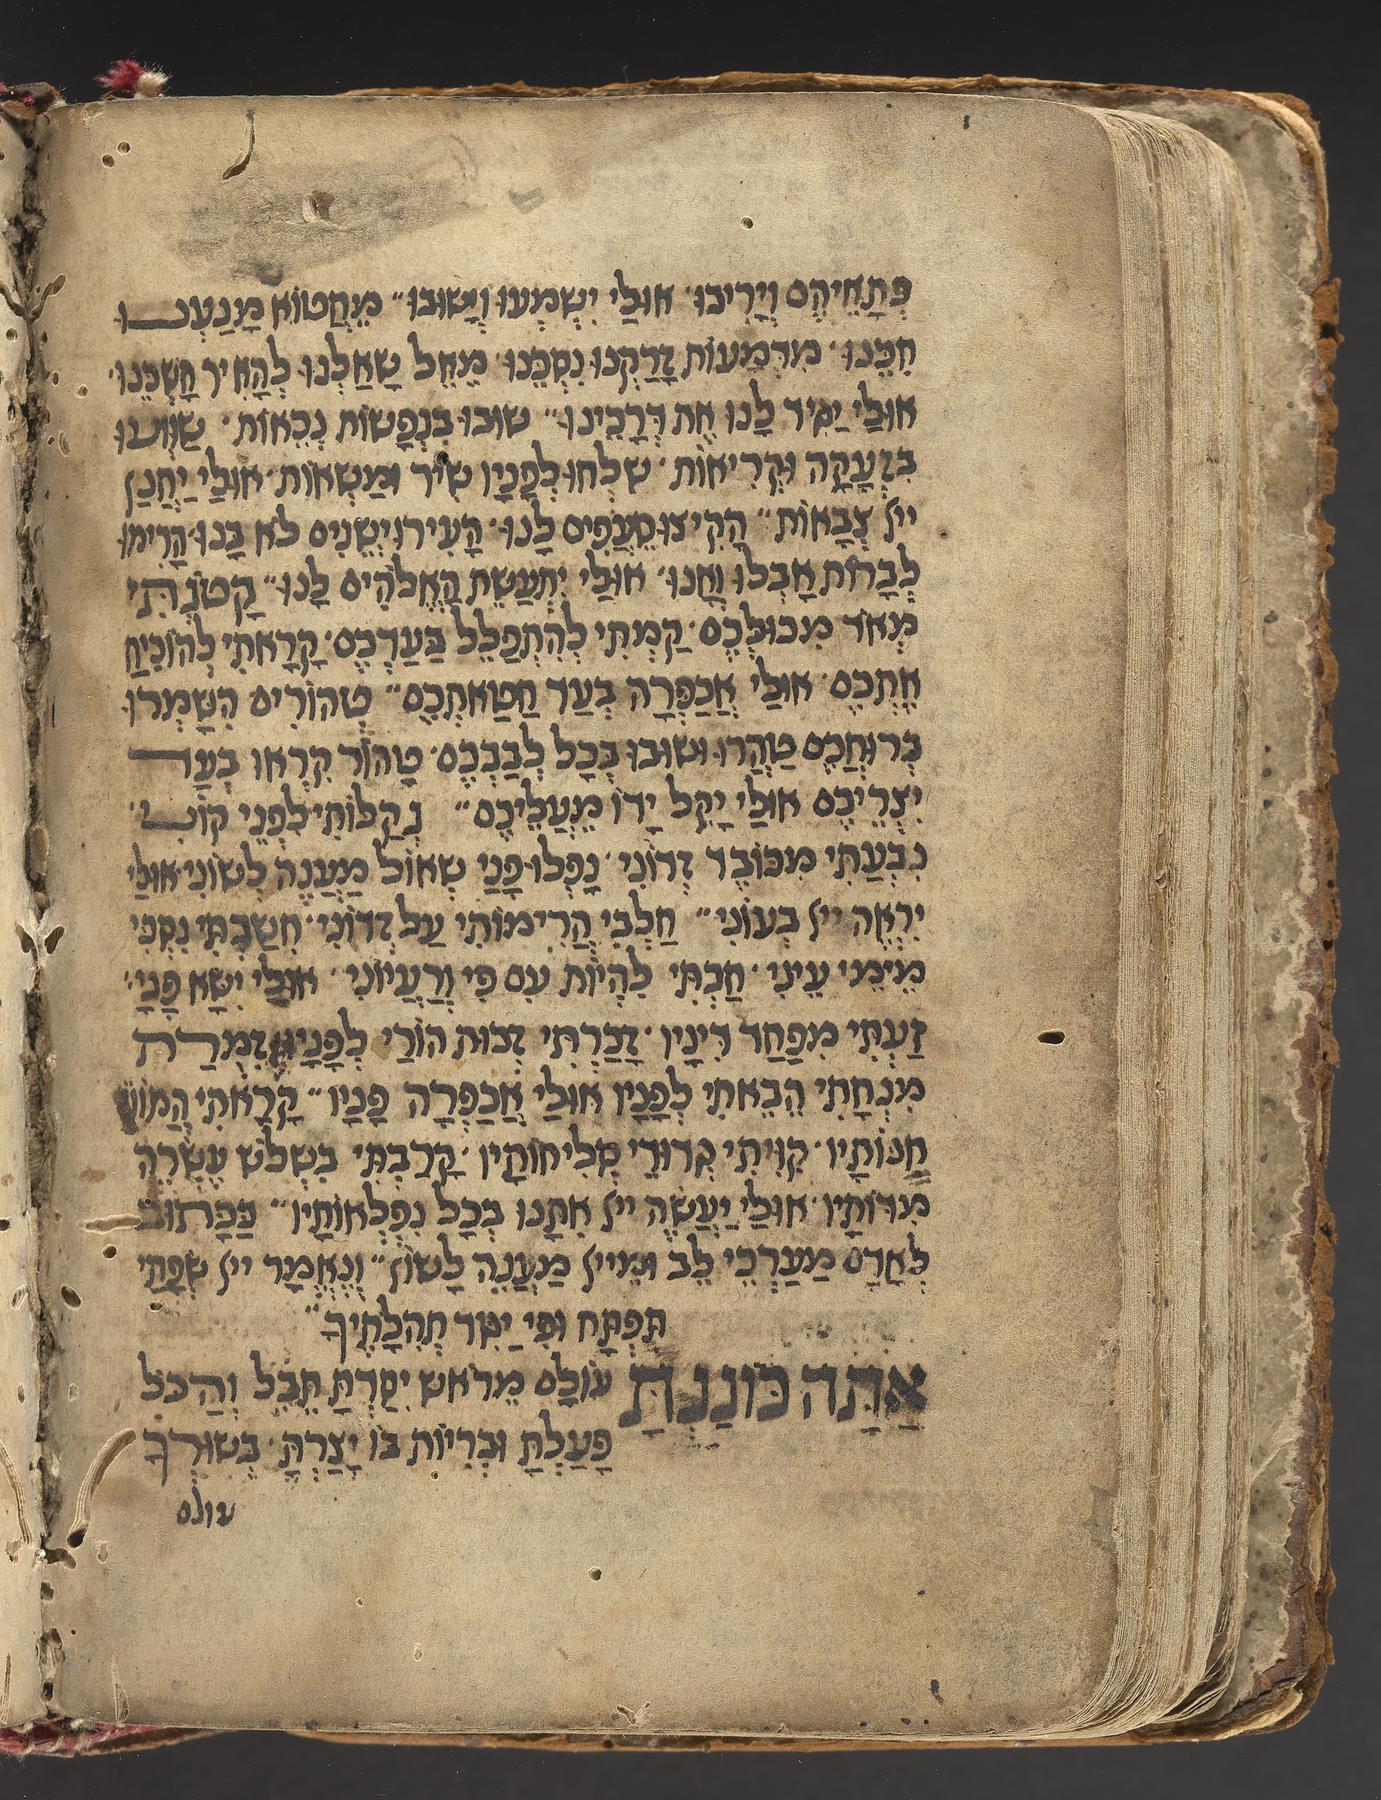 פְּתָחֵיהֶם וְיָרִיבוּ · אוּלַי יִשְׁמְעוּ וְיָשׁוּבוּ ״ מֵחֲטוֹא מָנַעְנוּ
חִכֵּנוּ · מִדְּמָעוֹת זָרַקְנוּ נִסְכֵּנוּ · מֵאֵל שָׁאַלְנוּ לְהָאִיר חָשְׁכֵּנוּ ·
אוּלַי יַסִּיר לָנוּ אֶת דְּרָכֵינוּ ״ שׁוּבוּ בִּנְפָשׁוֹת נְכֵאוֹת · שַׁוְּעוּ
בִּזְעָקָה וּקְרִיאוֹת · שִׁלְחוּ לְפָנָיו שִׁיר וּמַשְׂאוֹת · אוּלַי יֶחֱנַן
ייי צְבָאוֹת ״ הָקִיצוּ סְעִפִּים לָנוּ · הָעִירוּ יְשֵׁנִים לֹא בָנוּ · הָרִימוּ
לְבָרוֹת אָבְלוּ וְאָנוּ · אוּלַי יִתְעַשֵּׁת הָאֱלֹהִים לָנוּ ״ קָטֹנְתִּי
מְאֹד מִכּוּלְּכֶם · קַמְתִּי לְהִתְפַּלֵּל בַּעַדְכֶם · קָרָאתִי לְהוֹכִיחַ
אֶתְכֶם · אוּלַי אֲכַפְּרָה בְּעַד חַטַּאתְכֶם ״ טְהוֹרִים הִשָּׁמְרוּ
בְּרוּחֲכֶם טַהֲרוּ וְשׁוּבוּ בְּכָל לְבַבְכֶם · טָהוֹר קִרְאוּ בְּעַד
יִצְרֵיכֶם אוּלַי יָקֵל יָדוֹ מֵעֲלֵיכֶם ״ נְקַלּוֹתִי לִפְנֵי קוֹנִי ·
נִבְעַתִּי מִכּוֹבֶד זְדוֹנִי · נָפְלוּ פָנַי שְׁאוֹל מַעֲנֶה לְשׁוֹנִי · אוּלַי
יִרְאֶה ייי בְּעוֹנִי ״ חֶלְבִּי הֲרִימוֹתִי עַל זְדוֹנִי · חִשַּׁבְתִּי נִסְכִּי
מֵימֵי עֵינִי · חִכִּתִי לִהְיוֹת עִם פִּי וְרַעְיוֹנִי · אוּלַי יִשָּׂא פָנָי ·
זַעְתִּי מִפַּחַד דִּינָיו · זָכַרְתִּי זְכוּת הוֹרַי לְפָנָיו · זִמְרַת
מִנְחָתִי הֵבֵאתִי לְפָנָיו אוּלַי אֲכַפְּרָה פָנָיו ״ קָרָאתִי הֲמוֹן
תְּחִנּוֹתָיו · קִוִּיתִי לְרוּבֵי סְלִיחוֹתָיו · קָרַבְתִּי בִּשְׁלֹשׁ עֶשְׂרֵה
מִדּוֹתָיו · אוּלַי יַעֲשֶׂה ייי אִתָּנוּ כְּכָל נִפְלְאוֹתָיו ״ כַּכָּתוּב
לְאָדָם מַעַרְכֵי לֵב וּמֵייי מַעֲנֵה לָשׁוֹן ״ וְנֶאֱמַר ייי שְׂפָתַי
תִּפְתָּח וּפִי יַגִּיד תְּהִלָּתֶיךָ ״
אַתָּה כּוֹנַנְתָּ עוֹלָם מֵרֹאשׁ יִסַּדְתָּ תֵּבֵל וְהַכֹּל
פָּעַלְתָּ וּבְרִיּוֹת בּוֹ יָצַרְתָּ · בְּשׁוּרְךָ
עולם